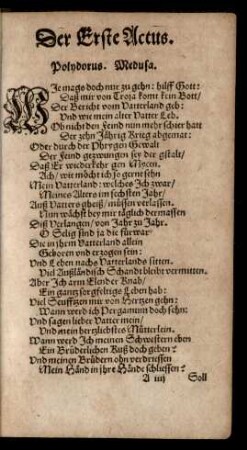 Der Erste Actus.
Polydorus. Medusa.
Wie mags doch nur zu gehn: hilff Gott:
Daß mir von Troja komt kein Bott/
Der Bericht vom Vatterland geb:
Und wie mein alter Vatter Leb.
Ob nicht den Feind nun mehr schier hatt
Der zehn Jährig Krieg abgemat:
Oder durch der Phrygen Gewalt
Der Feind gezwungen sey der gstalt/
Daß Er wiederkehr gen Mycen.
Ach/ wie möcht ich so gerne sehn
Mein Vatterland: welches Jch zwar/
Meines Alters im sechsten Jahr/
Auß Vatters gheiß/ müssen verlassen.
Nun wächst bey mir täglich dermassen
Diß Verlangen/ von Jahr zu Jahr.
O Selig sind ja die fürwar
Die in jhrm Vatterland allein
Geboren und erzogen sein:
Und Leben nachs Vatterlands sitten.
Viel Außländisch Schandt bleibt vermitten.
Aber Jch arm Elender Knab/
Ein gantz sorgfeltigs Leben hab:
Viel Seufftzen nur von Hertzen gehn:
Wann werd ich Pergamum doch sehn:
Und sagen lieber Vatter mein/
Und mein hertzliebstes Mütterlein.
Wann werd Jch meinen Schwestern eben
Ein Brüderlichen Kuß doch geben?
Und meinen Brüdern ohn verdriessen
Mein Händ in jhre Hände schliessen?
A iiij Soll